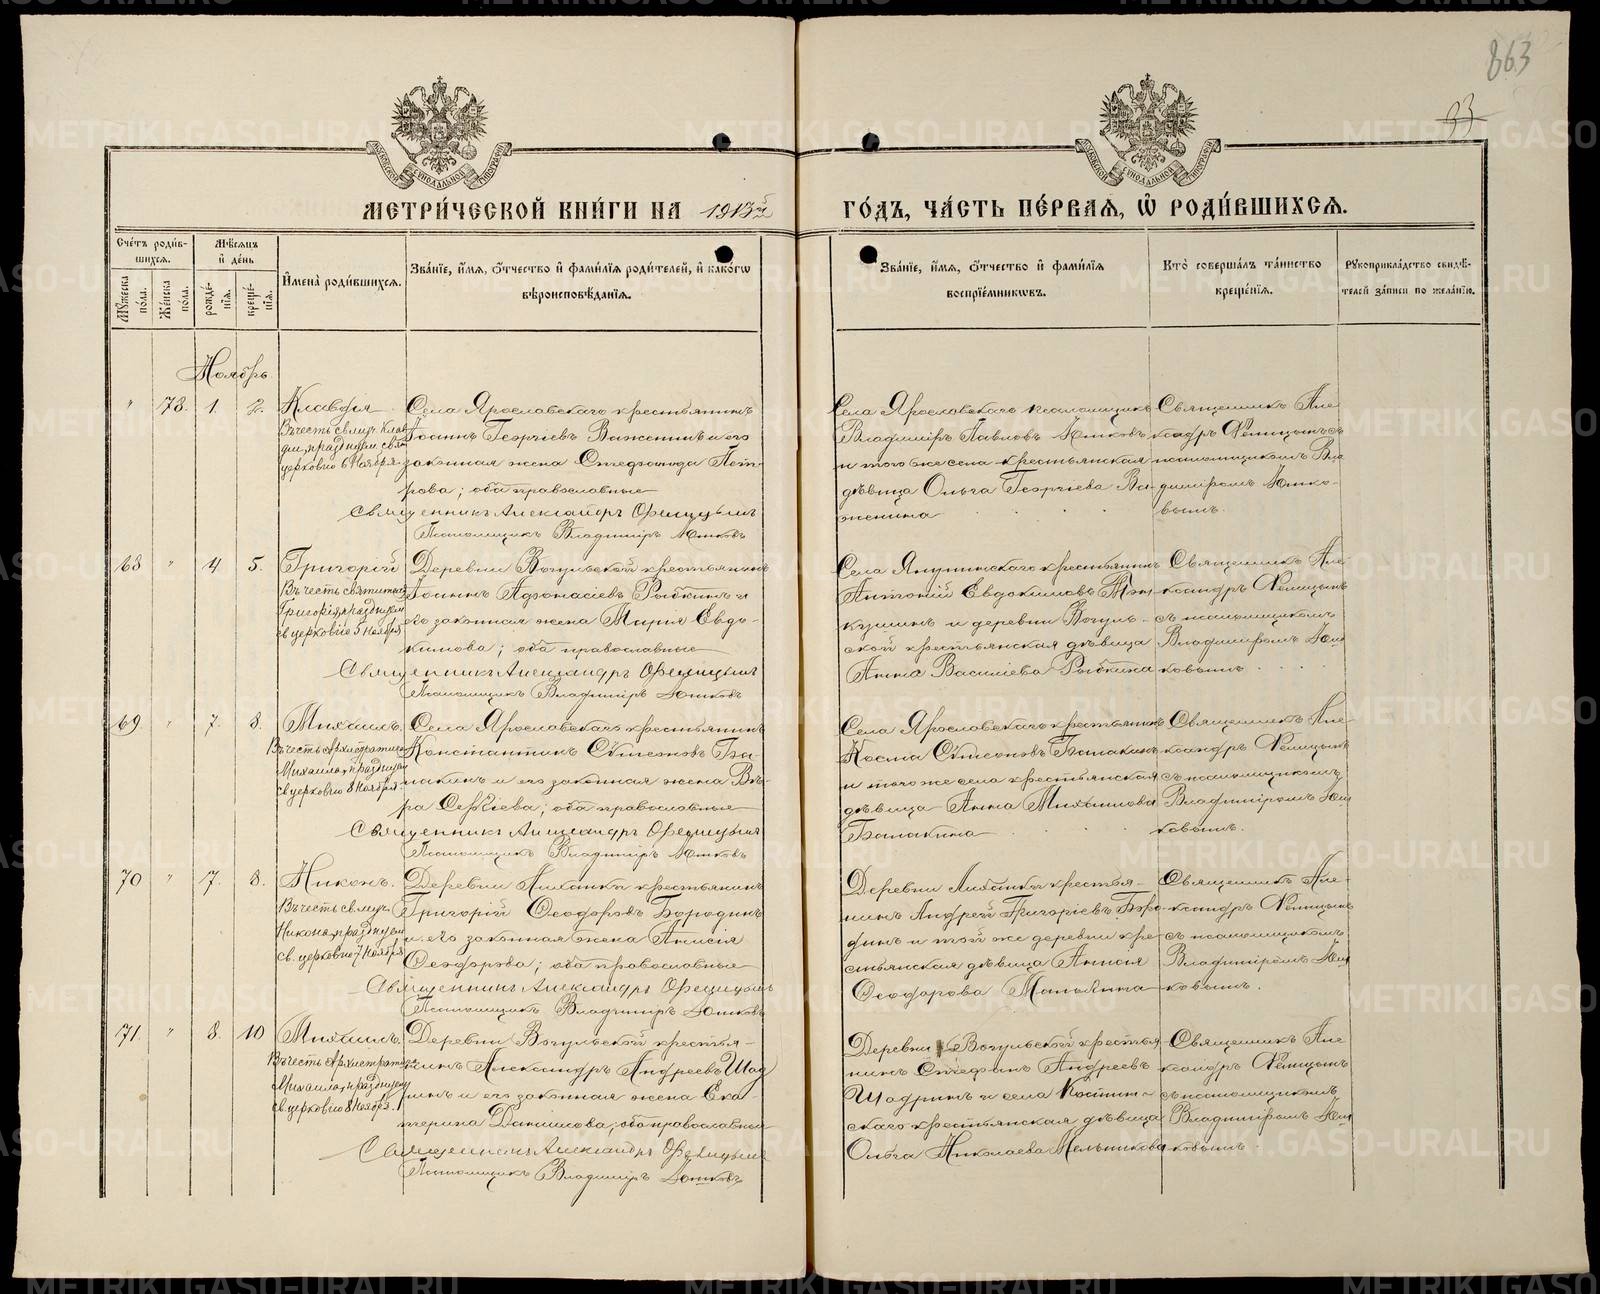 863
93
МЕТРИ́ЧЕСКОЙ КНИ́ГИ НА 1913й
ГО́ДЪ, ЧА́СТЬ ПЕ́РВАЯ, Ѡ҆ РОДИ́ВШИХСЯ.
Сче́тъ роди́в-
шихся.
Мѣ́сяцъ
и҆ де́нь
Мꙋ́жеска по́ла.
Же́нска по́ла.
рожде́-
нїя.
креще́-
нїя.
И҆мена̀ роди́вшихся.
Зва́нїе, и҆́мя, ѻ҆́тчество и҆ фами́лїя роди́телей, и҆ како́гѡ
вѣроисповѣ́данїя.
Зва́нїе, и҆́мя, ѻ҆́тчество и҆ фами́лїя
воспрїе́мникѡвъ.
Кто̀ соверша́лъ та́инство
креще́нїя.
Рꙋкоприкла́дство свидѣ́-
телей за́писи по жела́нїю.
Ноябрь.
" 73. 1. 2. Клавдія
Въ честь св. муч. Клав-
діи, празднуем. св.
церковію 6 Ноября.
Села Ярославскаго крестьянинъ
Іоаннъ Георгіевъ Важенинъ и его
законная жена Стефанида Пет-
рова; оба православные
Священникъ Александръ Фелицынъ
Псаломщикъ Владиміръ Юшковъ
Села Ярославскаго псаломщикъ
Владиміръ Павловъ Юшковъ
и того же села крестьянская
дѣвица Ольга Георгіева Ва-
женина
Священникъ Але-
ксандръ Фелицынъ съ
псаломщикомъ Вла-
диміромъ Юшко-
вымъ.
68 " 4 5. Григорій
Въ честь святителя
Григорія, празднуем.
св. церковію 5 Ноября
Деревни Вогульской крестьянинъ
Іоаннъ Афонасіевъ Рыбкинъ и
его законная жена Марія Евдо-
кимова; оба православные
Священникъ Александръ Фелицынъ
Псаломщикъ Владиміръ Юшковъ
крестьянинъ
Антоній Евдокимовъ
и деревни Вогуль-
ской крестьянская дѣвица
Анна Василіева Рыбкина
Священникъ Але-
ксандръ Фелицынъ
съ псаломщикомъ
Владиміромъ Юш-
ковымъ
69. " 7. 8. Михаилъ.
Въ честь Архистратига
Михаила, празднуем.
св. церковію 8 Ноября.
Села Ярославскаго крестьянинъ
Константинъ Сѵмеоновъ Ба-
лакинъ и его законная жена Вѣ-
ра Сергіева; оба православные
Священникъ Александръ Фелицынъ
Псаломщикъ Владиміръ Юшковъ
Села Ярославскаго крестьянинъ
Косма Сѵмеоновъ Балакинъ
и того же села крестьянская
дѣвица Анна Михаилова
Балакина
Священникъ Але-
ксандръ Фелицынъ
съ псаломщикомъ
Владиміромъ Юш-
ковымъ.
70 " 7. 8. Никонъ.
Въ честь св. муч.
Никона, празднуем.
св. церковію 7 Ноября
Деревни крестьянинъ
Григорій Ѳеодоровъ Бородинъ
и его законная жена Анисія
Ѳеодорова; оба православные
Священникъ Александръ Фелицынъ
Псаломщикъ Владиміръ Юшковъ
Деревни крестья-
нинъ Андрей Григоріевъ Боро-
динъ и той же деревни кре-
стьянская дѣвица
Ѳеодорова
Священникъ Але-
ксандръ Фелицынъ
съ псаломщикомъ
Владиміромъ Юш-
ковымъ.
71. " 8. 10 Михаилъ.
Въ честь Архистратига
Михаила, празднуем.
св. церковію 8 Ноября.
Деревни Вогульской крестья-
нинъ Александръ Андреевъ Шад-
ринъ и его законная жена Ека-
терина Данилова; оба православные
Священникъ Александръ Фелицынъ
Псаломщикъ Владиміръ Юшковъ
Деревни Вогульской крестья-
нинъ Стефанъ Андреевъ
Шадринъ и села Костин-
скаго крестьянская дѣвица
Ольга Николаева Мельникова
Священникъ Але-
ксандръ Фелицынъ
съ псаломщикомъ
Владиміромъ Юш-
ковымъ
METRIKI.GASO-URAL.RU